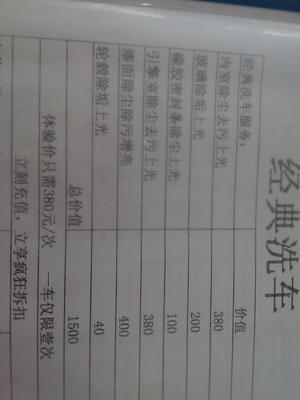 经典洗车
经典洗车服务: 价值
内室除尘去污上光 380
玻璃除垢上光 200
橡胶密封条除尘上光 100
引擎室除尘去污上光 380
漆面除尘除污增亮 400
轮毂除垢上光 40
总价值 1500
体验价只需380元/次 一车仅限壹次
立刻充值，立享疯狂折扣